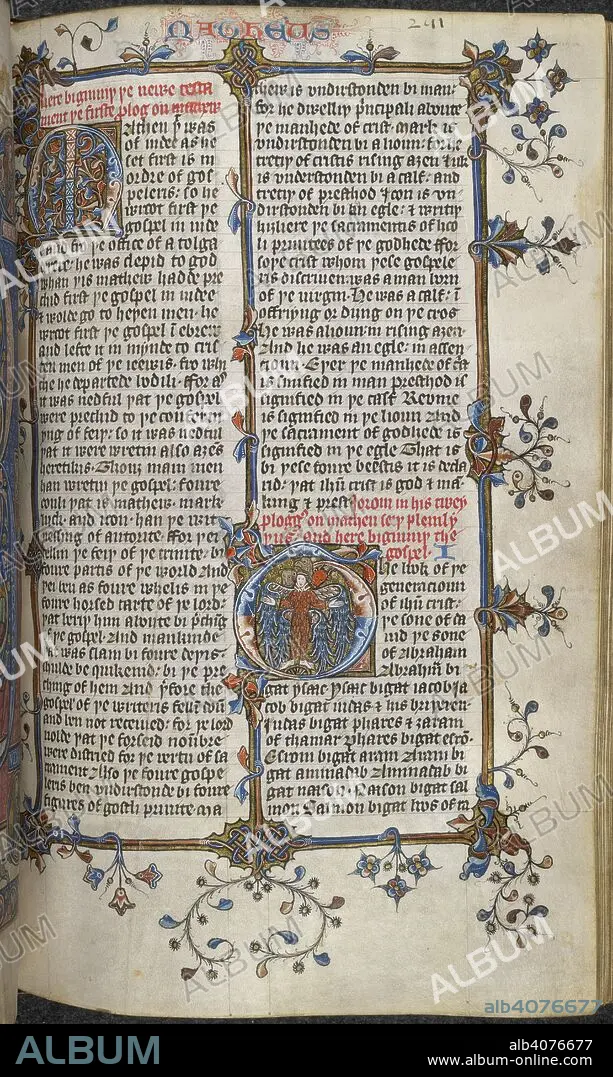 MATHEUS
241
here biginniþ þe newe testa
ment þe firste plog on mathew
Mathen þt was
of iudee as he
set first is in
ordre of gos
peleris: so he
wroot first þe
gospel in iude
fro þe office of a tolga
he was clepid to god
whan þis mathew hadde pre
chid first þe gospel in iudee
& wolde go to heþen men. he
wroot first þe gospel i ebrew
and lefte it in mynde to cris
ten men of þe iewis. fro whi
che he departede bodili. ffor as
it was nedful þat þe gospel
were prechid to þe
yng of feiþ: so it was nedful
þat it were writen also aȝens
heretikis. Thouȝ many men
han writen þe gospel: foure
oonli þat is mathew. mark
luck. and ioon. han þe wit
nessing of autorite. ffor þei
tellen þe feiþ of þe trinite. bi
foure partis of þe world And
þei ben as foure wheelis in þe
foure horsed carte of þe lord:
þat beriþ hym aboute bi
þe gospel. And mankinde
was slain bi foure deþis.
schulde be quikenid: bi þe pre
ching of hem And þfore the
gospel of þe writeris
and ben not receiued. for þe lord
nolde þat þe forseid noumbre
were distried for þe vertu of sa
crament Also þe foure gospe
leris ben vndirstonde bi foure
figures of gostli priuite Ma
thew is vndirstonden bi man:
for he dwelliþ principali aboute
þe manhede of crist. mark is
vndirstonden bi a lioun: for he
tretiþ of cristis rising aȝen luk
is vnderstonden bi a calf: and
tretiþ of presthod & ioon is vn
dirstonden bi an egle: & writiþ
hiȝere þe sacramentis of hoo
li priuitees of þe godhede ffor
soþe crist whom þese gospele
ris discriuen. was a man born
of þe virgyn. He was a calf: i
offryng or dying on þe cros
he was a lioun: in rising aȝen.
And he was an egle: in ascen
cioun Eþer þe manhede of crist
is signified in man presthod is
signified in þe calf Rewme
is signified in þe lioun And
þe sacrament of godhede is
signified in þe egle That is
bi þese foure beestis it is decla
rid. þat ihu crist is god & ma
king & prest Jerom in his twey
plogis on mathew seiþ pleinly
þus. and here biginniþ the
gospel. I
The book of þe
generacioun
of ihu crist:
þe sone of da
uid þe sone
of Abraham
Abraham bi
gat ysaac ysaac bigat iacob ia
cob bigat iudas & his briþeren
iudas bigat phares & zaram
of thamar phares bigat esrom
Esrom bigat aram Aram bi
gat aminadab Aminadab bi
gat naason. Naason bigat sal
mon Salmon bigat boos of ra
ALBUM
alb4076677
ALBUM
alb4076677
www.album-online.com